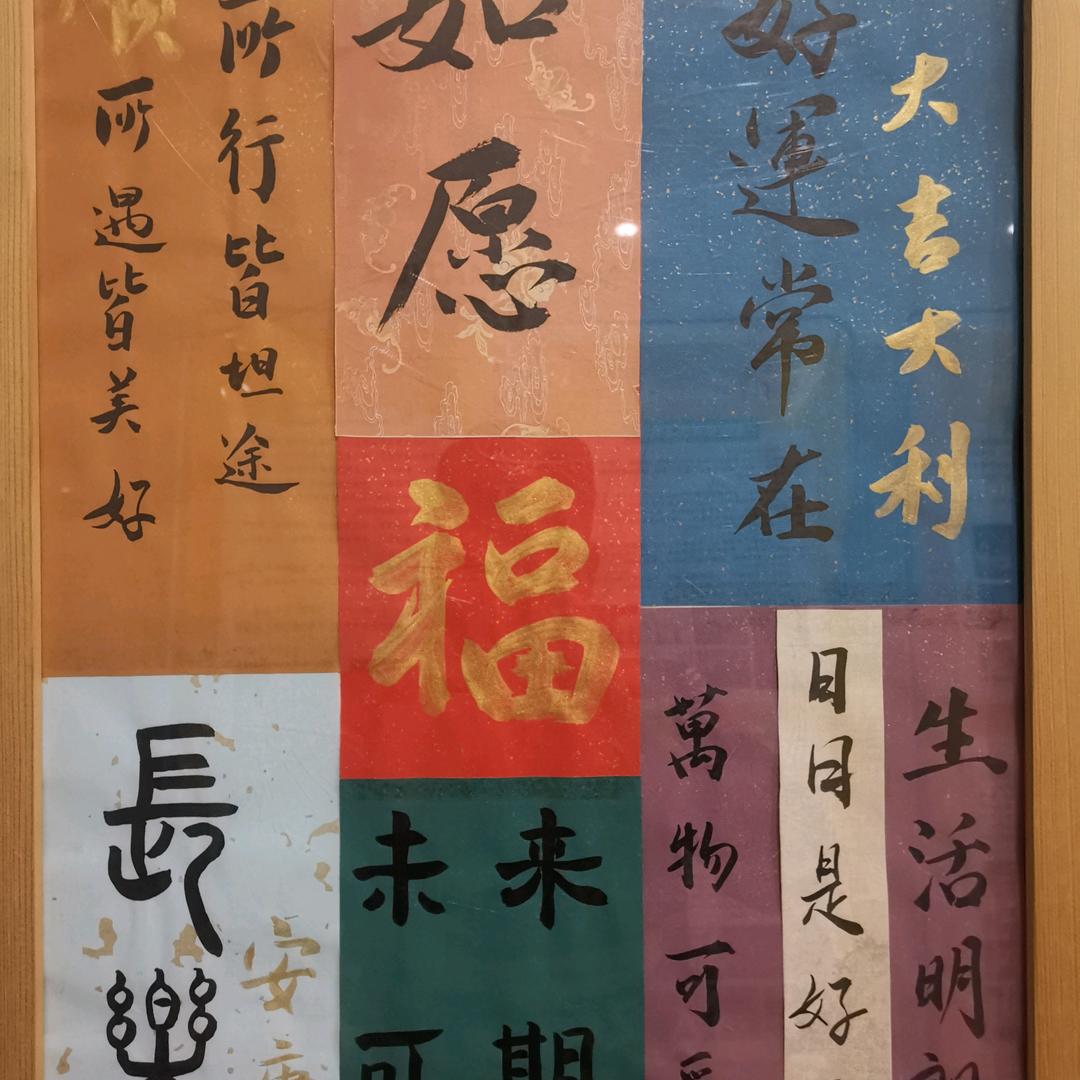 所行皆坦途
所遇皆美好
如
愿
大吉大利
好運常在
福
長樂
安
未来
可期
生活明
日日是好
萬物可